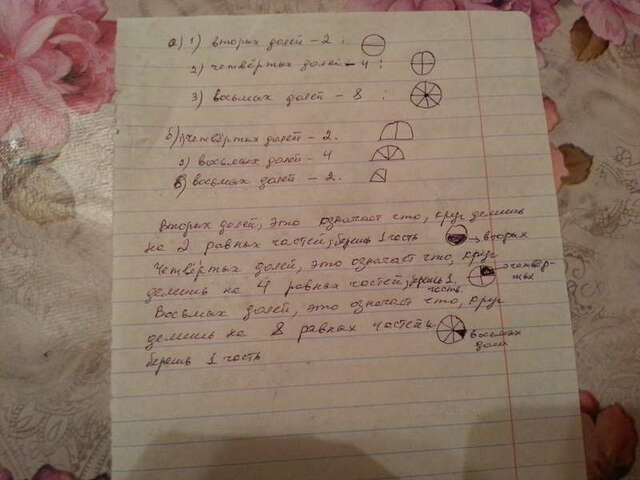 а) 1) вторых долей – 2 :
2) четвёртых долей – 4 :
3) восьмых долей – 8 :
б) 1) четвёртых долей – 2.
2) восьмых долей – 4
в) восьмых долей – 2.
Вторых долей, это означает что, круг делишь
на 2 равных частей, берешь 1 часть → вторых
Четвёртых долей, это означает что, круг → четвёр-
тых
делишь на 4 равных частей, берешь 1
часть
Восьмых долей, это означает что, круг
делишь на 8 равных частей и восьмых
доли
берешь 1 часть